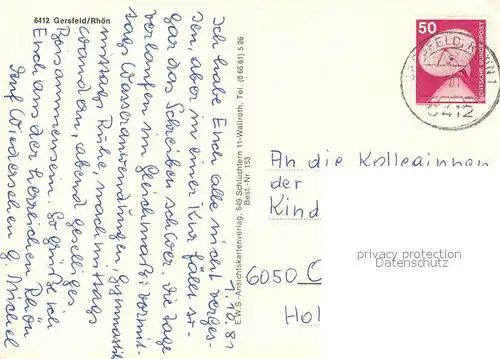 6412 Gersfeld/Rhön
7. 10. 81
Ich habe Euch alle nicht verges-
sen, aber in einer Kur fällt so-
gar das Schreiben schwer. Die Tage
verlangen im Gleichmaß: vormit-
tags Wasseranwendungen, Gymnastik
mittags Ruhe, nachmittags
wandern, abend geselliges
Beisammensein. So grüße ich
Euch aus der herrlichen Rhön
Auf Wiedersehen G. Michel
E.W.S.-Ansichtskartenverlag, 649 Schlüchtern 11-Wallroth, Tel. (0 66 61) 5 26
Best.-Nr. 153
50
DEUTSCHE BUNDESPOST
GERSFELD, RHÖN 1
6412
An die Kolleginnen
der
Kind
6050 O
Hol
privacy protection
watermark